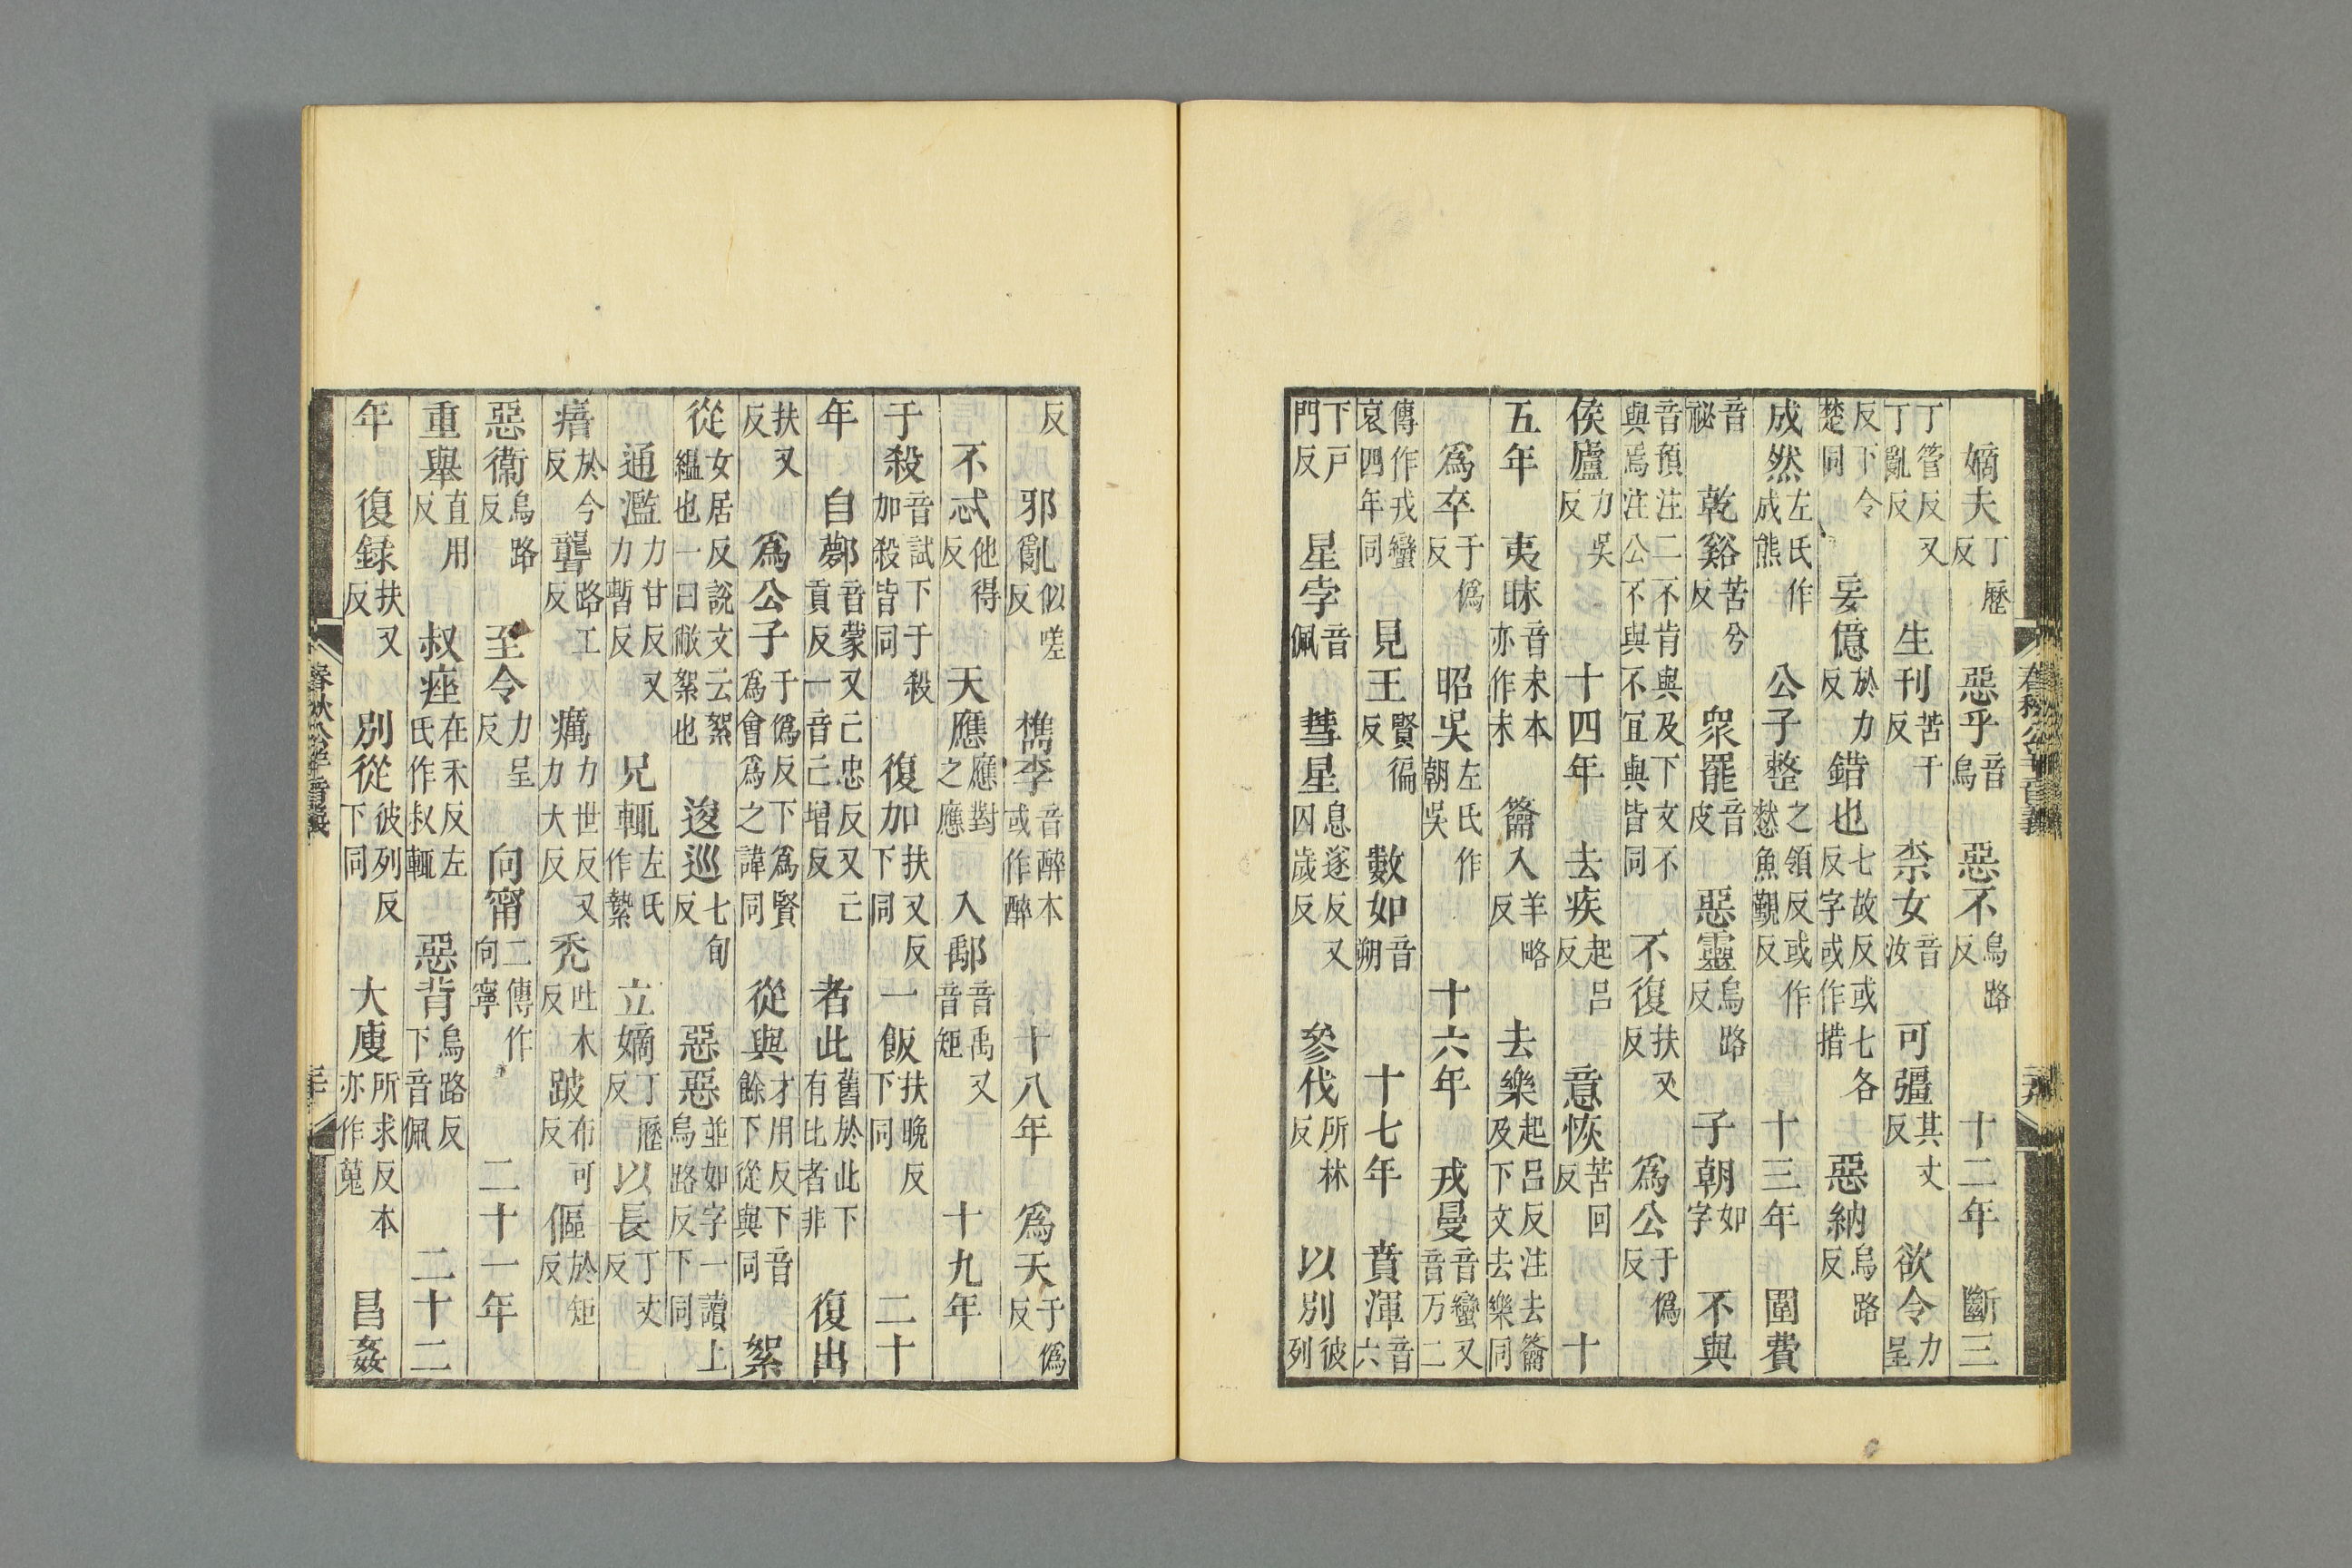 嫡夫丁歷反 惡乎音烏 惡不烏路反 十二年 斷三
丁管反又丁亂反 生刊苦干反 柰女音汝 可彊其丈反 欲令力呈
反下令楚同 妄億於力反 錯也七故反或七各反字或作措 惡納烏路反
成然左氏作成熊 公子整之領反或作憖魚覲反 十三年 圍費
音祕 乾谿苦兮反 衆罷音皮 惡靈烏路反 子朝如字 不與
音預注二不肯與及下文不與焉注公不與不宜與皆同 不復扶又反 爲公于僞反
侯廬力吳反 十四年 去疾起呂反 意恢苦回反 十
五年 夷昧音末本亦作末 籥入羊略反 去樂起呂反注去籥及下文去樂同
爲卒于僞反 昭吳左氏作朝吳 十六年 戎曼音蠻又音万二
傳作戎蠻哀四年同 見王賢徧反 數如音朔 十七年 賁渾音六
下戶門反 星孛音佩 彗星息遂反又囚歲反 參伐所林反 以別彼列
反 邪亂似嗟反 檇李音醉本或作醉 十八年 爲天于僞反
不忒他得反 天應應對之應 入鄅音禹又音矩 十九年
于殺音試下于殺加殺皆同 復加扶又反下同 一飯扶晚反下同 二十
年 自鄸音蒙又己忠反又亡貢反一音己增反 者此舊於此下有比者非 復出
扶又反 爲公子于僞反下爲賢爲會爲之諱同 從與才用反下音餘下從與同 絮
從女居反說文云絮縕也一曰敝絮也 逡巡七旬反 惡惡並如字一讀上烏路反下同
通濫力甘反又力暫反 兄輒左氏作縶 立嫡丁歷反 以長丁丈反
瘖於今反 聾路工反 癘力世反又力大反 禿吐木反 跛布可反 傴於矩反
惡衞烏路反 至令力呈反 向甯二傳作向寧 二十一年
重舉直用反 叔痤在禾反左氏作叔輒 惡背烏路反下音佩 二十二
年 復録扶又反 別從彼列反下同 大廋所求反本亦作蒐 昌姦